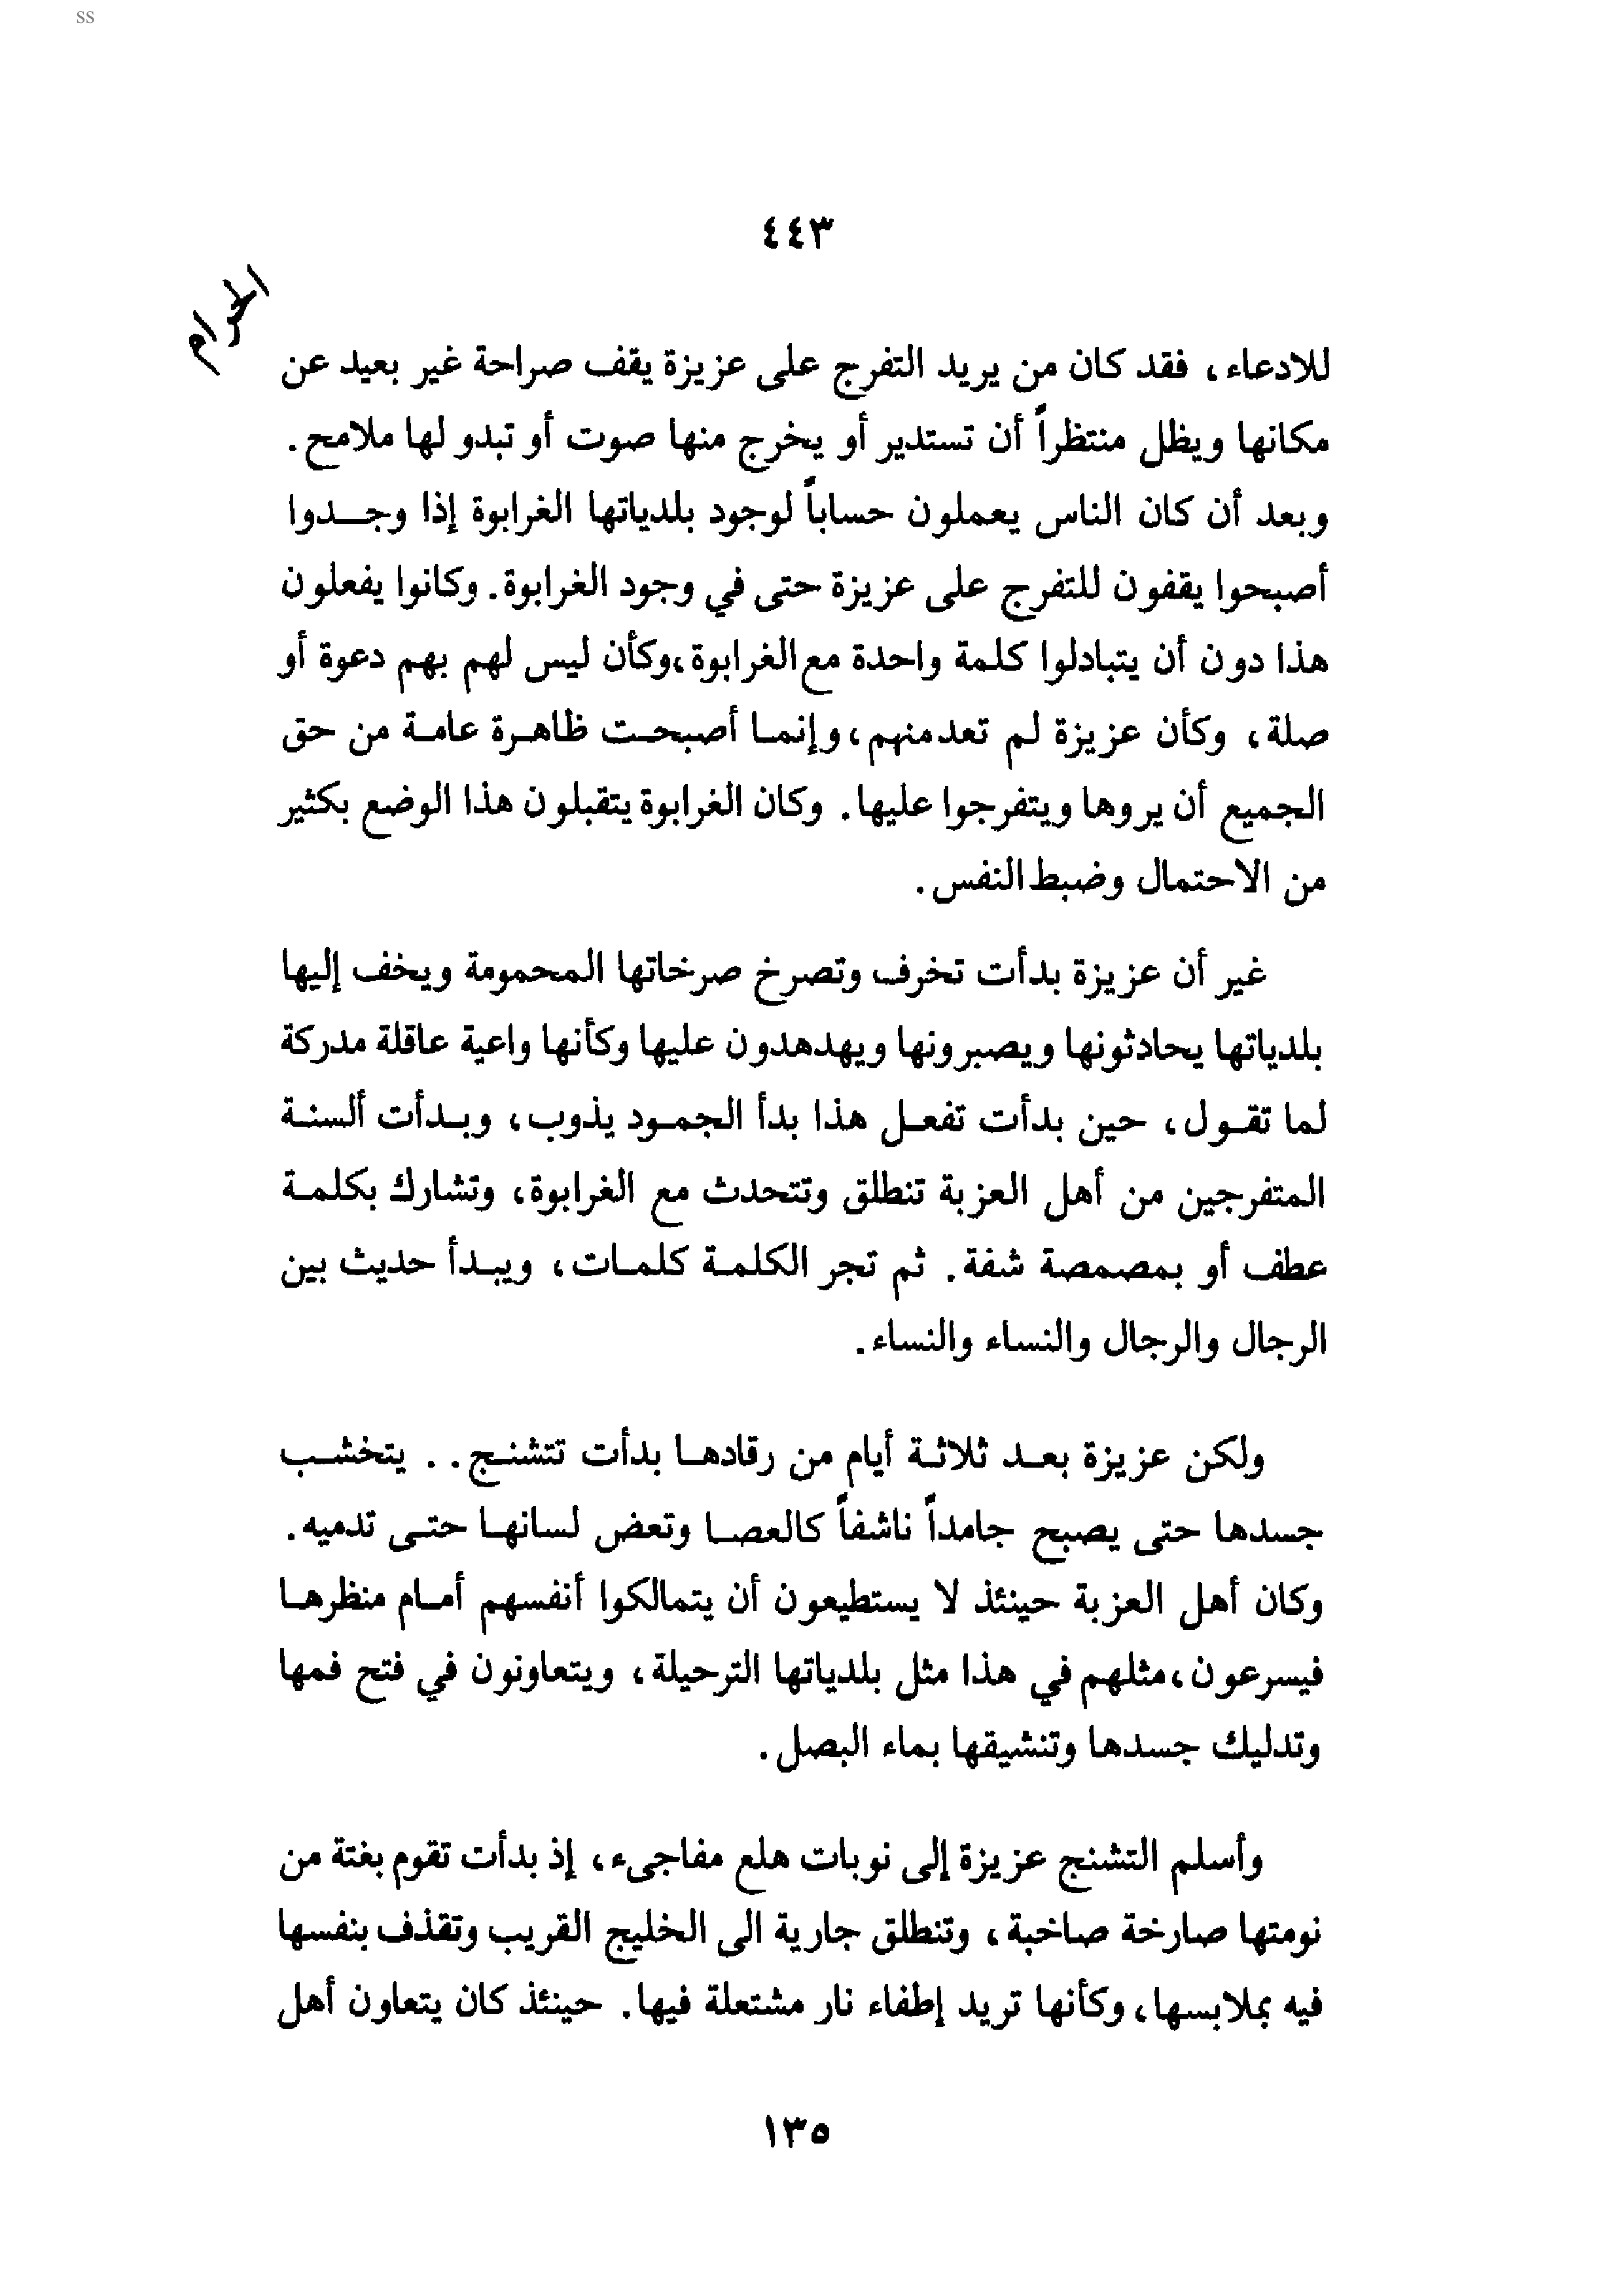 ss
٤٤٣
الحرام
للادعاء، فقد كان من يريد التفرج على عزيزة يقف صراحة غير بعيد عن
مكانها ويظل منتظراً أن تستدير أو يخرج منها صوت أو تبدو لها ملامح.
وبعد أن كان الناس يعملون حساباً لوجود بلدياتها الغرابوة إذا وجـدوا
أصبحوا يقفون للتفرج على عزيزة حتى في وجود الغرابوة. وكانوا يفعلون
هذا دون أن يتبادلوا كلمة واحدة مع الغرابوة، وكأن ليس لهم بهم دعوة أو
صلة، وكأن عزيزة لم تعد منهم، وإنما أصبحت ظاهرة عامة من حق
الجميع أن يروها ويتفرجوا عليها. وكان الغرابوة يتقبلون هذا الوضع بكثير
من الاحتمال وضبط النفس.
غير أن عزيزة بدأت تخرف وتصرخ صرخاتها المحمومة ويخف إليها
بلدياتها يحادثونها ويصبرونها ويهدهدون عليها وكأنها واعية عاقلة مدركة
لما تقول، حين بدأت تفعل هذا بدأ الجمود يذوب، وبدأت ألسنة
المتفرجين من أهل العزبة تنطلق وتتحدث مع الغرابوة، وتشارك بكلمة
عطف أو بمصمصة شفة. ثم تجر الكلمة كلمات، ويبدأ حديث بين
الرجال والرجال والنساء والنساء.
ولكن عزيزة بعد ثلاثة أيام من رقادها بدأت تتشنج.. يتخشب
جسدها حتى يصبح جامداً ناشفاً كالعصا وتعض لسانها حتى تدميه.
وكان أهل العزبة حينئذ لا يستطيعون أن يتمالكوا أنفسهم أمام منظرها
فيسرعون، مثلهم في هذا مثل بلدياتها الترحيلة، ويتعاونون في فتح فمها
وتدليك جسدها وتنشيقها بماء البصل.
وأسلم التشنج عزيزة إلى نوبات هلع مفاجىء، إذ بدأت تقوم بغتة من
نومتها صارخة صاخبة، وتنطلق جارية الى الخليج القريب وتقذف بنفسها
فيه بملابسها، وكأنها تريد إطفاء نار مشتعلة فيها. حينئذ كان يتعاون أهل
١٣٥